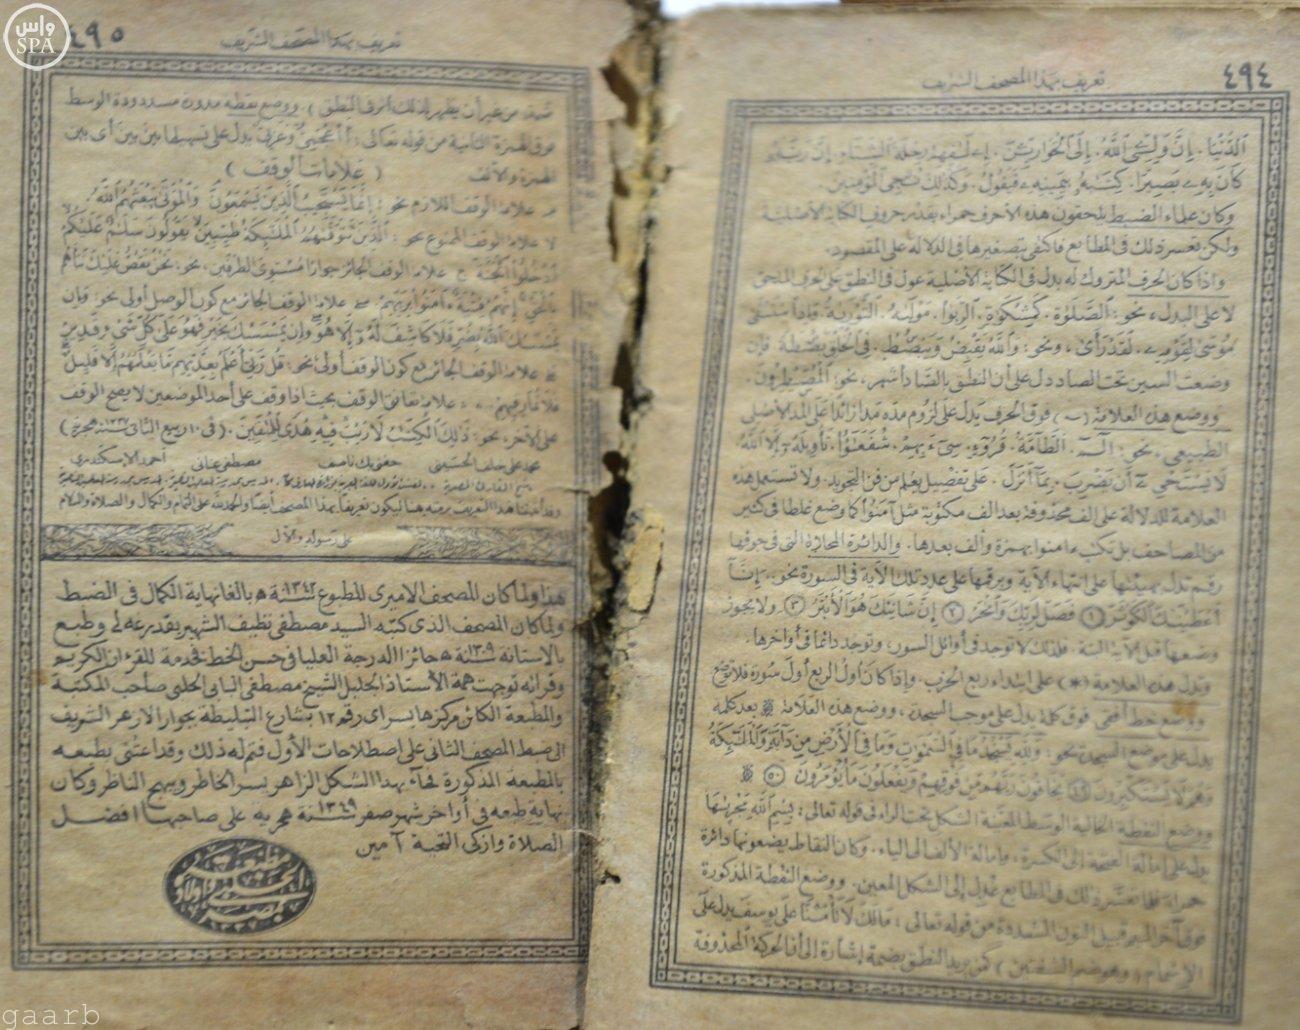 ٤٩٤
تعريف بهذا المصحف الشريف
ٱلدُّنْيَا. إِنَّ وَلِـِّۧيَ ٱللَّهُ. إِلَى ٱلْحَوَارِيِّـۧنَ. إِۦلَٰفِهِمْ رِحْلَةَ ٱلشِّتَآءِ. إِنَّ رَبَّهُۥ
كَانَ بِهِۦ بَصِيرًا. كِتَٰبَهُۥ بِيَمِينِهِۦ فَيَقُولُ. وَكَذَٰلِكَ نُـۨجِي ٱلْمُؤْمِنِينَ.
وكان علماء الضبط يلحقون هذه الأحرف حمراء بقدر حروف الكتابة الأصلية
ولكن تعسر ذلك فى المطابع فاكتفى بتصغيرها فى الدلالة على المقصود.
واذا كان الحرف المتروك له بدل فى الكتابة الأصلية عول فى النطق على الحرف الملحق
لا على البدل، نحو: ٱلصَّلَوٰةَ. كَمِشْكَوٰةٍ. ٱلرِّبَوٰا. مَوْلَىٰهُ. ٱلتَّوْرَىٰةَ. وَإِذِ ٱسْتَسْقَىٰ
مُوسَىٰ لِقَوْمِهِۦ. لَقَدْ رَأَىٰ، ونحو: وَٱللَّهُ يَقْبِضُ وَيَبْصُۜطُ. فِى ٱلْخَلْقِ بَصْۜطَةً. فإن
وضعت السين تحت الصاد دل على أن النطق بالصاد أشهر، نحو: ٱلْمُصَۣيْطِرُونَ.
ووضع هذه العلامة (~) فوق الحرف يدل على لزوم مده مدا زائدا على المد الأصلى
الطبيعى، نحو: الٓمٓ. ٱلطَّآمَّةُ. قُرُوٓءٍ. سِىٓءَ بِهِمْ. شُفَعَٰٓؤُا۟. تَأْوِيلَهُۥٓ إِلَّا ٱللَّهُ
لَا يَسْتَحْىِۦٓ أَن يَضْرِبَ. بِمَآ أُنزِلَ. على تفصيل يعلم من فن التجويد. ولا تستعمل هذه
العلامة للدلالة على ألف محذوفة بعد ألف مكتوبة مثل آمنوا كما وضع غلطا فى كثير
من المصاحف بل تكتب ءامنوا بهمزة وألف بعدها. والدائرة المحلاة التى فى جوفها
رقم تدل بهيئتها على انتهاء الآية وبرقمها على عدد تلك الآية فى السورة نحو: إِنَّآ
أَعْطَيْنَٰكَ ٱلْكَوْثَرَ ١ فَصَلِّ لِرَبِّكَ وَٱنْحَرْ ٢ إِنَّ شَانِئَكَ هُوَ ٱلْأَبْتَرُ ٣ ولا يجوز
وضعها قبل الآية البتة. فلذلك لا توجد فى أوائل السور، وتوجد دائما فى أواخرها.
وتدل هذه العلامة (*) على ابتداء ربع الحزب. وإذا كان أول الربع أول سورة فلا توضع
ووضع خط أفقى فوق كلمة يدل على موجب السجدة، ووضع هذه العلامة ۩ بعد كلمة
يدل على موضع السجدة نحو: وَلِلَّهِ يَسْجُدُ مَا فِى ٱلسَّمَٰوَٰتِ وَمَا فِى ٱلْأَرْضِ مِن دَآبَّةٍ وَٱلْمَلَٰٓئِكَةُ
وَهُمْ لَا يَسْتَكْبِرُونَ ٤٩ يَخَافُونَ رَبَّهُم مِّن فَوْقِهِمْ وَيَفْعَلُونَ مَا يُؤْمَرُونَ ٥٠ ۩
ووضع النقطة الخالية الوسط المعينة الشكل تحت الراء فى قوله تعالى: بِسْمِ ٱللَّهِ مَجْر۪ىٰهَا
يدل على إمالة الفتحة إلى الكسرة، وإمالة الألف الى الياء. وكان النقاط يضعونها دائرة
حمراء فلما تعسر ذلك فى المطابع عُدِل إلى الشكل المعين. ووضع النقطة المذكورة
فوق آخر الميم قبيل النون المشددة من قوله تعالى: مَالَكَ لَا تَأْمَ۫نَّا عَلَىٰ يُوسُفَ يدل على
الإشمام (وهو ضم الشفتين) كمن يريد النطق بضمة إشارة إلى أن الحركة المحذوفة
٤٩٥
تعريف بهذا المصحف الشريف
ضمة، من غير أن يظهر لذلك أثر فى النطق). ووضع نقطة مدورة مسدودة الوسط
فوق الهمزة الثانية من قوله تعالى: ءَا۬عْجَمِىٌّ وَعَرَبِىٌّ يدل على تسهيلها بين بين أى بين
الهمزة والألف (علامات الوقف)
م علامة الوقف اللازم نحو: إِنَّمَا يَسْتَجِيبُ ٱلَّذِينَ يَسْمَعُونَ ۘ وَٱلْمَوْتَىٰ يَبْعَثُهُمُ ٱللَّهُ.
لا علامة الوقف الممنوع نحو: ٱلَّذِينَ تَتَوَفَّىٰهُمُ ٱلْمَلَٰٓئِكَةُ طَيِّبِينَ ۙ يَقُولُونَ سَلَٰمٌ عَلَيْكُمُ
ٱدْخُلُوا۟ ٱلْجَنَّةَ ج علامة الوقف الجائز جوازا مستوى الطرفين، نحو: نَّحْنُ نَقُصُّ عَلَيْكَ نَبَأَهُم
بِٱلْحَقِّ ۚ إِنَّهُمْ فِتْيَةٌ ءَامَنُوا۟ بِرَبِّهِمْ صلے علامة الوقف الجائز مع كون الوصل أولى نحو: وَإِن
يَمْسَسْكَ ٱللَّهُ بِضُرٍّ فَلَا كَاشِفَ لَهُۥٓ إِلَّا هُوَ ۖ وَإِن يَمْسَسْكَ بِخَيْرٍ فَهُوَ عَلَىٰ كُلِّ شَىْءٍ قَدِيرٌ
قلے علامة الوقف الجائز مع كون الوقف أولى نحو: قُل رَّبِّىٓ أَعْلَمُ بِعِدَّتِهِم مَّا يَعْلَمُهُمْ إِلَّا قَلِيلٌ ۗ
فَلَا تُمَارِ فِيهِمْ. ∴ ∴ علامة تعانق الوقف بحيث اذا وقف على أحد الموضعين لا يصح الوقف
على الآخر، نحو: ذَٰلِكَ ٱلْكِتَٰبُ لَا رَيْبَ ۛ فِيهِ ۛ هُدًى لِّلْمُتَّقِينَ. (فى ١٠ ربيع الثانى ١٣٣٧ هجرية)
محمد على خلف الحسينى حفنى بك ناصف مصطفى عنانى أحمد الإسكندرى
شيخ المقارئ المصرية
وقد أثبتنا هذا التعريف برمته هنا ليكون تعريفا بهذا المصحف أيضا والحمد لله على التمام والكمال والصلاة والسلام
على رسوله والآل
هذا ولما كان المصحف الاميرى المطبوع سنة ١٣٤٢ ه بالغا نهاية الكمال فى الضبط
ولما كان المصحف الذى كتبه السيد مصطفى نظيف الشهير بقدرغه لى وطبع
بالاستانة سنة ١٣٠٩ ه حائزا الدرجة العليا فى حسن الخط فخدمة للقرءان الكريم
وقرائه توجهت همة الأستاذ الجليل الشيخ مصطفى البابى الحلبى صاحب المكتبة
والمطبعة الكائن مركزها بسراى رقم ١٢ بشارع التبليطة بجوار الازهر الشريف
الى ضبط المصحف الثانى على اصطلاحات الأول فتم له ذلك وقد اعتنى بطبعه
بالمطبعة المذكورة فجاء بهذا الشكل الزاهر يسر الخاطر ويبهج الناظر وكان
نهاية طبعه فى أواخر شهر صفر سنة ١٣٤٩ هجرية على صاحبها افضل
الصلاة وازكى التحية آمين
واس
SPA
gaarb